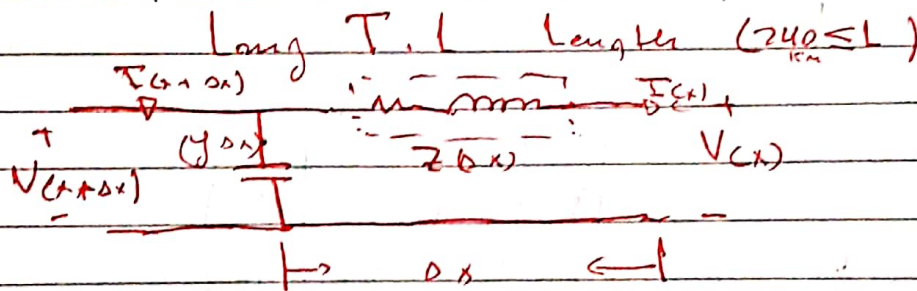 Long T.L Length (240≤L)
km
I(x+Δx) I(x)
+ (yΔx) zΔx) +
V(x+Δx) V(x)
- -
Δx